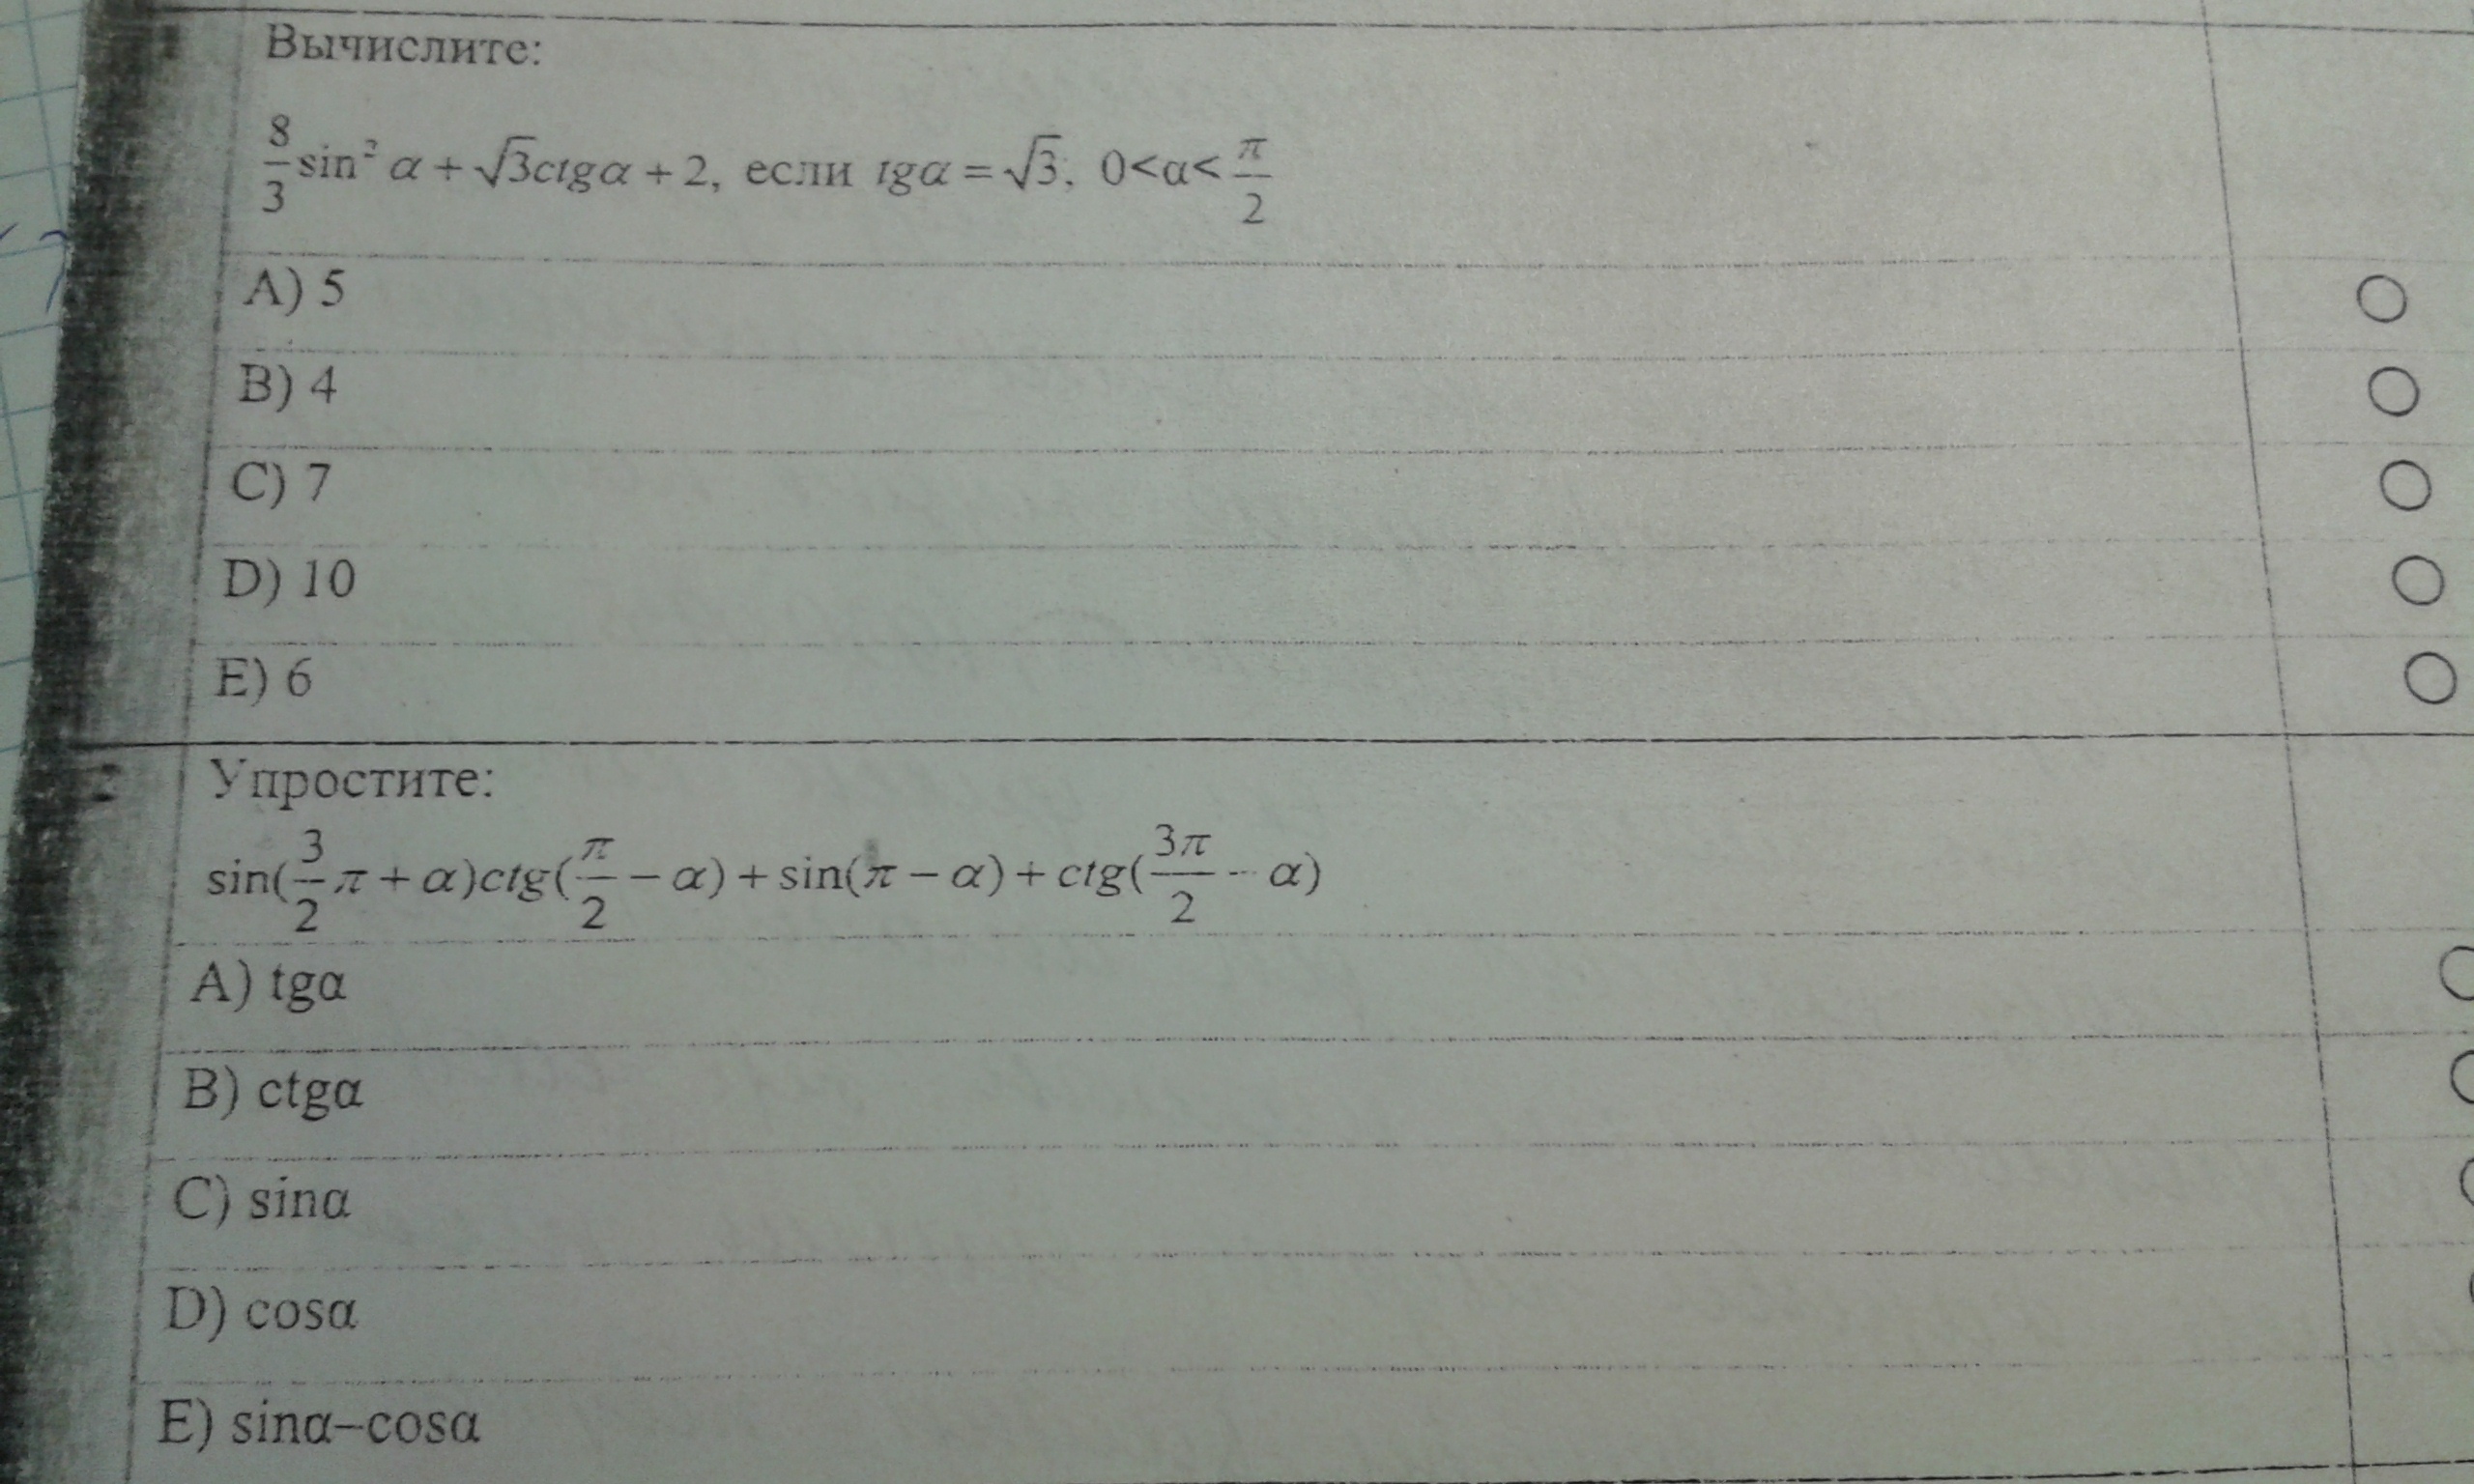 1 Вычислите:
8/3 sin² α + √3ctgα + 2, если tgα = √3, 0<α< π/2
A) 5
B) 4
C) 7
D) 10
E) 6
2 Упростите:
sin(3/2 π + α)ctg(π/2 − α) + sin(π − α) + ctg(3π/2 − α)
A) tgα
B) ctgα
C) sinα
D) cosα
E) sinα–cosα